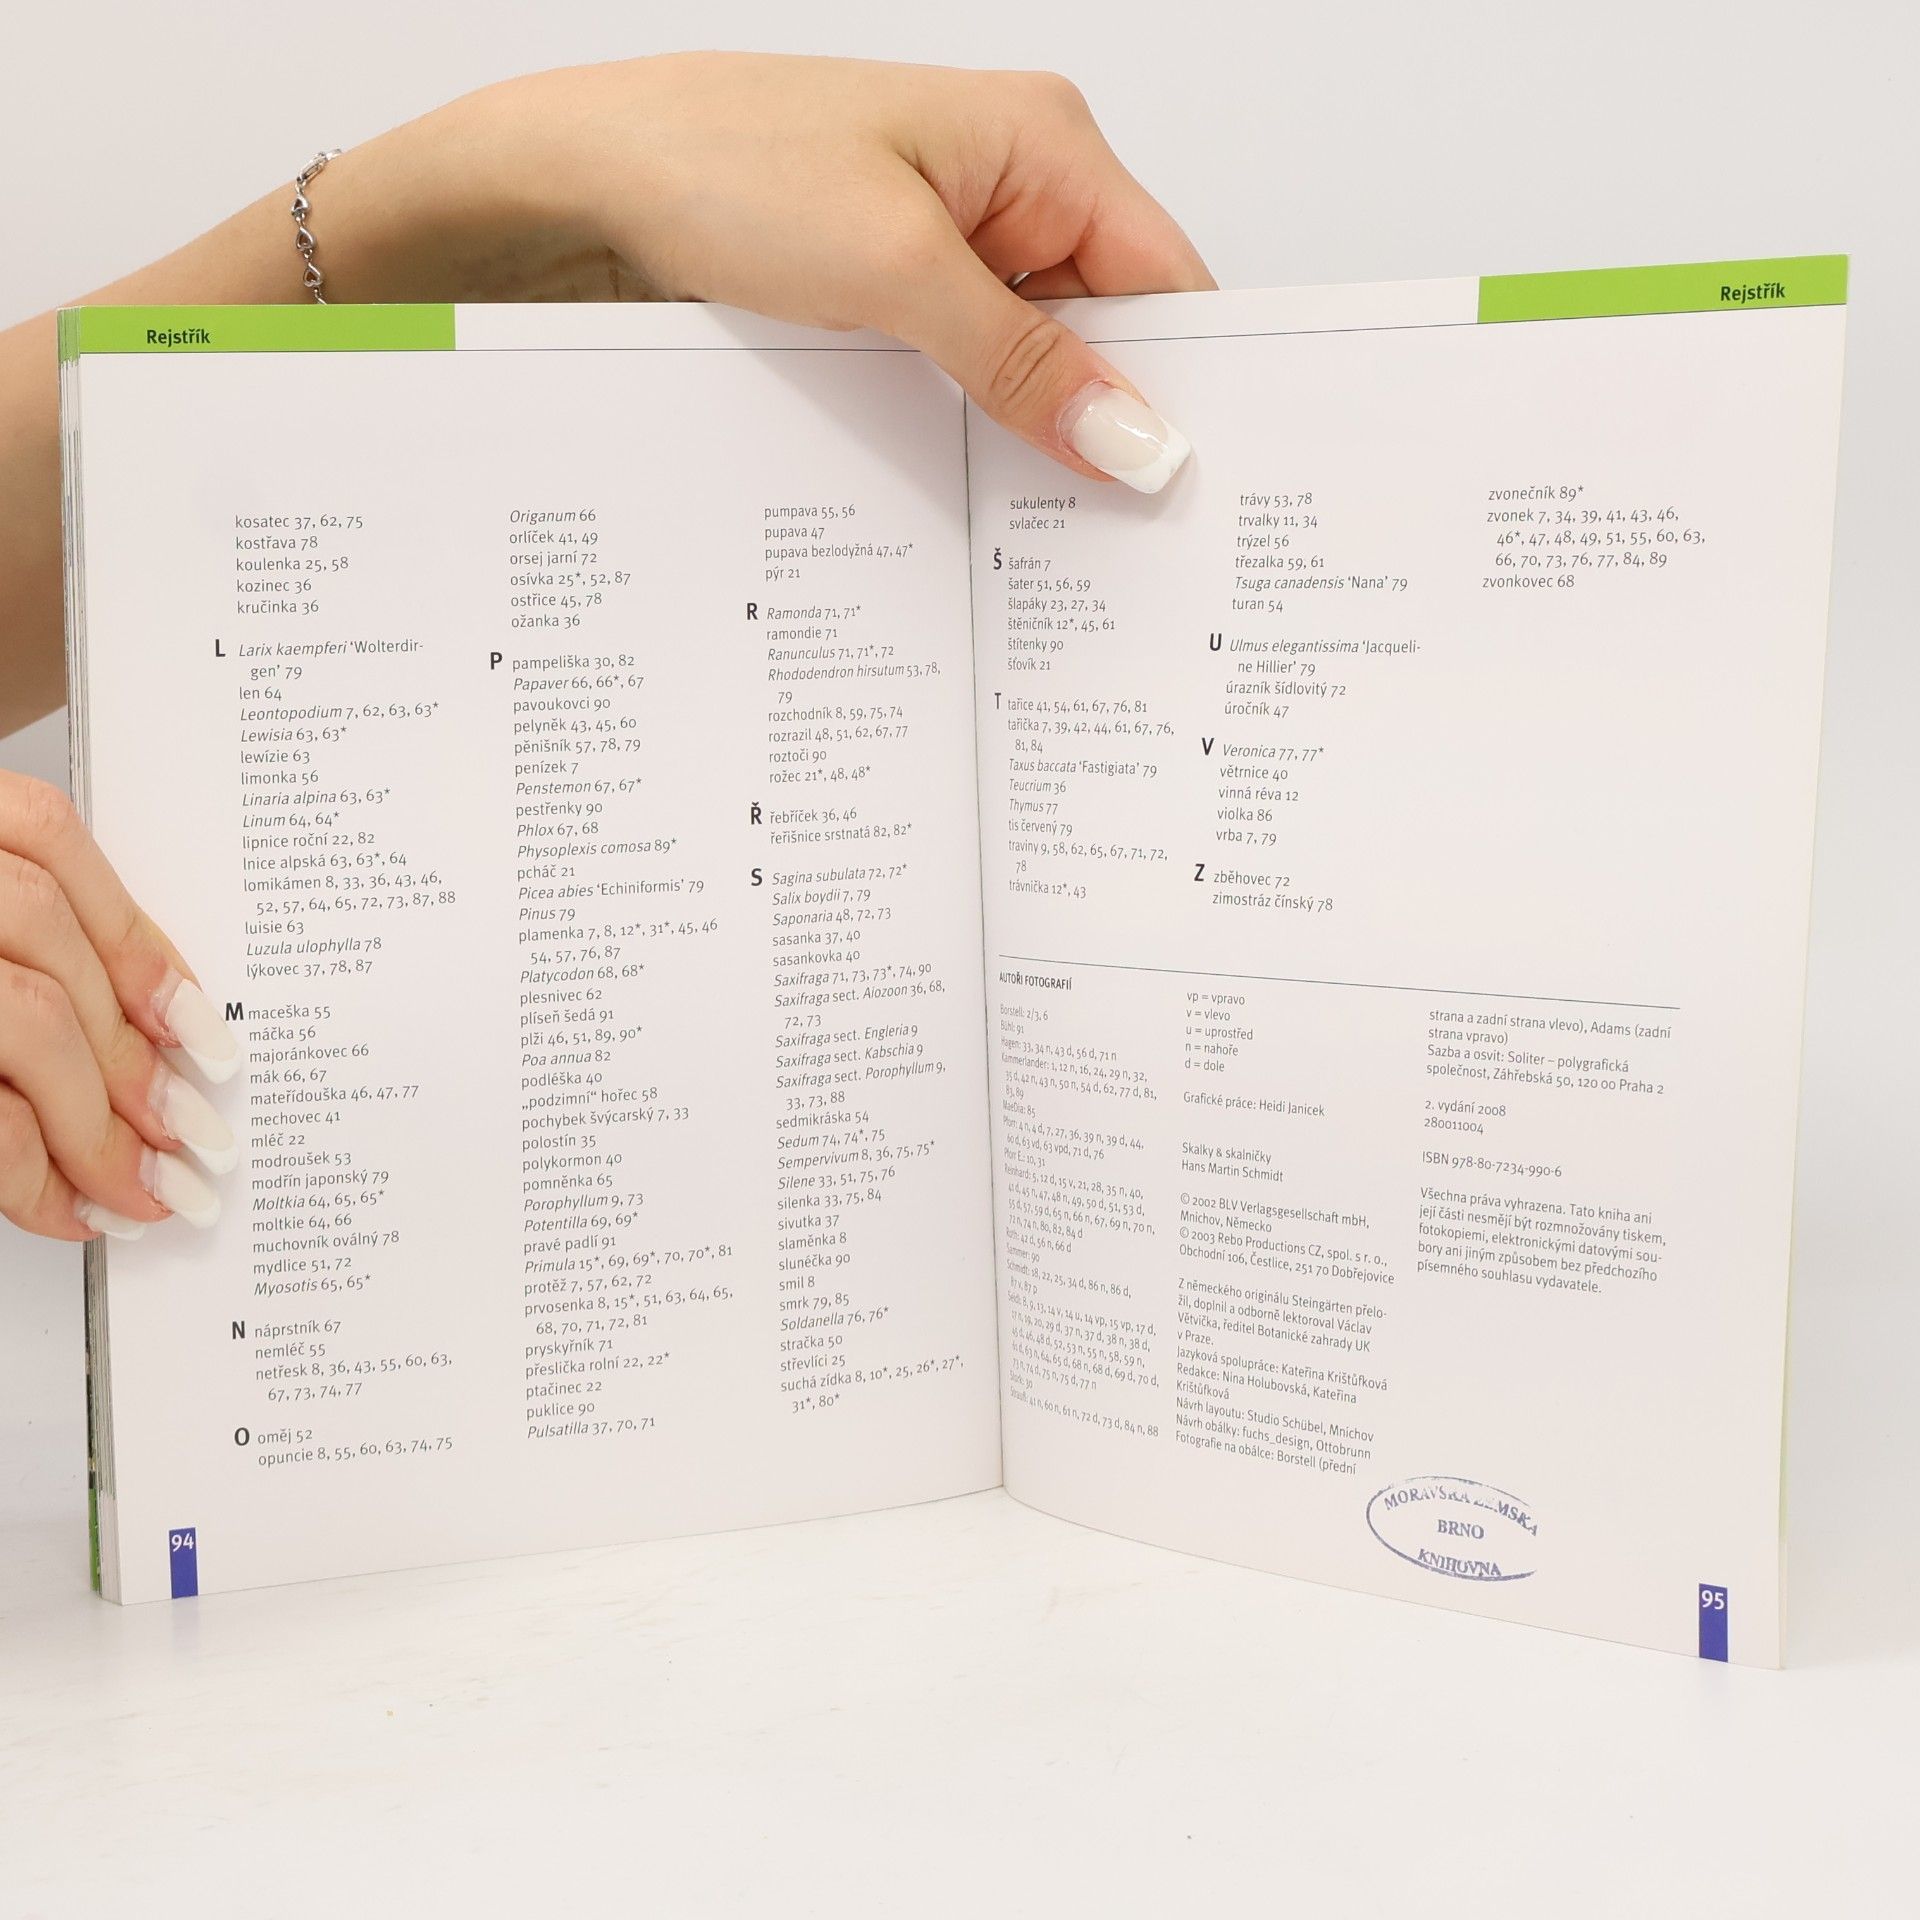 Rejstřík
kosatec 37, 62, 75
kostřava 78
koulenka 25, 58
kozinec 36
kručinka 36
L Larix kaempferi ‘Wolterdir-
gen’ 79
len 64
Leontopodium 7, 62, 63, 63*
Lewisia 63, 63*
lewízie 63
limonka 56
Linaria alpina 63, 63*
Linum 64, 64*
lipnice roční 22, 82
lnice alpská 63, 63*, 64
lomikámen 8, 33, 36, 43, 46,
52, 57, 64, 65, 72, 73, 87, 88
luisie 63
Luzula ulophylla 78
lýkovec 37, 78, 87
M maceška 55
máčka 56
majoránkovec 66
mák 66, 67
mateřídouška 46, 47, 77
mechovec 41
mléč 22
modroušek 53
modřín japonský 79
Moltkia 64, 65, 65*
moltkie 64, 66
muchovník oválný 78
mydlice 51, 72
Myosotis 65, 65*
N náprstník 67
nemléč 55
netřesk 8, 36, 43, 55, 60, 63,
67, 73, 74, 77
O oměj 52
opuncie 8, 55, 60, 63, 74, 75
Origanum 66
orlíček 41, 49
orsej jarní 72
osívka 25*, 52, 87
ostřice 45, 78
ožanka 36
P pampeliška 30, 82
Papaver 66, 66*, 67
pavoukovci 90
pelyněk 43, 45, 60
pěnišník 57, 78, 79
penízek 7
Penstemon 67, 67*
pestřenky 90
Phlox 67, 68
Physoplexis comosa 89*
pcháč 21
Picea abies ‘Echiniformis’ 79
Pinus 79
plamenka 7, 8, 12*, 31*, 45, 46
54, 57, 76, 87
Platycodon 68, 68*
plesnivec 62
plíseň šedá 91
plži 46, 51, 89, 90*
Poa annua 82
podléška 40
„podzimní“ hořec 58
pochybek švýcarský 7, 33
polostín 35
polykormon 40
pomněnka 65
Porophyllum 9, 73
Potentilla 69, 69*
pravé padlí 91
Primula 15*, 69, 69*, 70, 70*, 81
protěž 7, 57, 62, 72
prvosenka 8, 15*, 51, 63, 64, 65,
68, 70, 71, 72, 81
pryskyřník 71
přeslička rolní 22, 22*
ptačinec 22
puklice 90
Pulsatilla 37, 70, 71
pumpava 55, 56
pupava 47
pupava bezlodyžná 47, 47*
pýr 21
R Ramonda 71, 71*
ramondie 71
Ranunculus 71, 71*, 72
Rhododendron hirsutum 53, 78,
79
rozchodník 8, 59, 75, 74
rozrazil 48, 51, 62, 67, 77
roztoči 90
rožec 21*, 48, 48*
Ř řebříček 36, 46
řeřišnice srstnatá 82, 82*
S Sagina subulata 72, 72*
Salix boydii 7, 79
Saponaria 48, 72, 73
sasanka 37, 40
sasankovka 40
Saxifraga 71, 73, 73*, 74, 90
Saxifraga sect. Aiozoon 36, 68,
72, 73
Saxifraga sect. Engleria 9
Saxifraga sect. Kabschia 9
Saxifraga sect. Porophyllum 9,
33, 73, 88
sedmikráska 54
Sedum 74, 74*, 75
Sempervivum 8, 36, 75, 75*
Silene 33, 51, 75, 76
silenka 33, 75, 84
sivutka 37
slaměnka 8
slunéčka 90
smil 8
smrk 79, 85
Soldanella 76, 76*
stračka 50
střevlíci 25
suchá zídka 8, 10*, 25, 26*, 27*,
31*, 80*
94
Rejstřík
sukulenty 8
svlačec 21
Š šafrán 7
šater 51, 56, 59
šlapáky 23, 27, 34
štěničník 12*, 45, 61
štítenky 90
šťovík 21
T tařice 41, 54, 61, 67, 76, 81
tařička 7, 39, 42, 44, 61, 67, 76,
81, 84
Taxus baccata ‘Fastigiata’ 79
Teucrium 36
Thymus 77
tis červený 79
traviny 9, 58, 62, 65, 67, 71, 72,
78
trávnička 12*, 43
trávy 53, 78
trvalky 11, 34
trýzel 56
třezalka 59, 61
Tsuga canadensis ‘Nana’ 79
turan 54
U Ulmus elegantissima ‘Jacqueli-
ne Hillier’ 79
úrazník šídlovitý 72
úročník 47
V Veronica 77, 77*
větrnice 40
vinná réva 12
violka 86
vrba 7, 79
Z zběhovec 72
zimostráz čínský 78
zvonečník 89*
zvonek 7, 34, 39, 41, 43, 46,
46*, 47, 48, 49, 51, 55, 60, 63,
66, 70, 73, 76, 77, 84, 89
zvonkovec 68
AUTOŘI FOTOGRAFIÍ
Borstell: 2/3, 6
Bühl: 91
Hagen: 33, 34 n, 43 d, 56 d, 71 n
Kammerlander: 1, 12 n, 16, 24, 29 n, 32,
35 d, 42 n, 43 n, 50 n, 54 d, 62, 77 d, 81,
83, 89
MaeDia: 85
Pforr: 4 n, 4 d, 7, 27, 36, 39 n, 39 d, 44,
60 d, 63 vd, 63 vpd, 71 d, 76
Pforr E.: 10, 31
Reinhard: 5, 12 d, 15 v, 21, 28, 35 n, 40,
41 d, 45 n, 47, 48 n, 49, 50 d, 51, 53 d,
55 d, 57, 59 d, 65 n, 66 n, 67, 69 n, 70 n,
72 n, 74 n, 80, 82, 84 d
Roth: 42 d, 56 n, 66 d
Sammer: 90
Schmidt: 18, 22, 25, 34 d, 86 n, 86 d,
87 v, 87 p
Seidl: 8, 9, 13, 14 v, 14 u, 14 vp, 15 vp, 17 d,
17 n, 19, 20, 29 d, 37 n, 37 d, 38 n, 38 d,
45 d, 46, 48 d, 52, 53 n, 55 n, 58, 59 n,
61 d, 63 n, 64, 65 d, 68 n, 68 d, 69 d, 70 d,
73 n, 74 d, 75 n, 75 d, 77 n
Stork: 30
Strauß: 41 n, 60 n, 61 n, 72 d, 73 d, 84 n, 88
vp = vpravo
v = vlevo
u = uprostřed
n = nahoře
d = dole
Grafické práce: Heidi Janicek
Skalky & skalničky
Hans Martin Schmidt
© 2002 BLV Verlagsgesellschaft mbH,
Mnichov, Německo
© 2003 Rebo Productions CZ, spol. s r. o.,
Obchodní 106, Čestlice, 251 70 Dobřejovice
Z německého originálu Steingärten přelo-
žil, doplnil a odborně lektoroval Václav
Větvička, ředitel Botanické zahrady UK
v Praze.
Jazyková spolupráce: Kateřina Krištůfková
Redakce: Nina Holubovská, Kateřina
Krištůfková
Návrh layoutu: Studio Schübel, Mnichov
Návrh obálky: fuchs_design, Ottobrunn
Fotografie na obálce: Borstell (přední
strana a zadní strana vlevo), Adams (zadní
strana vpravo)
Sazba a osvit: Soliter – polygrafická
společnost, Záhřebská 50, 120 00 Praha 2
2. vydání 2008
280011004
ISBN 978-80-7234-990-6
Všechna práva vyhrazena. Tato kniha ani
její části nesmějí být rozmnožovány tiskem,
fotokopiemi, elektronickými datovými sou-
bory ani jiným způsobem bez předchozího
písemného souhlasu vydavatele.
MORAVSKÁ ZEMSKÁ
BRNO
KNIHOVNA
95